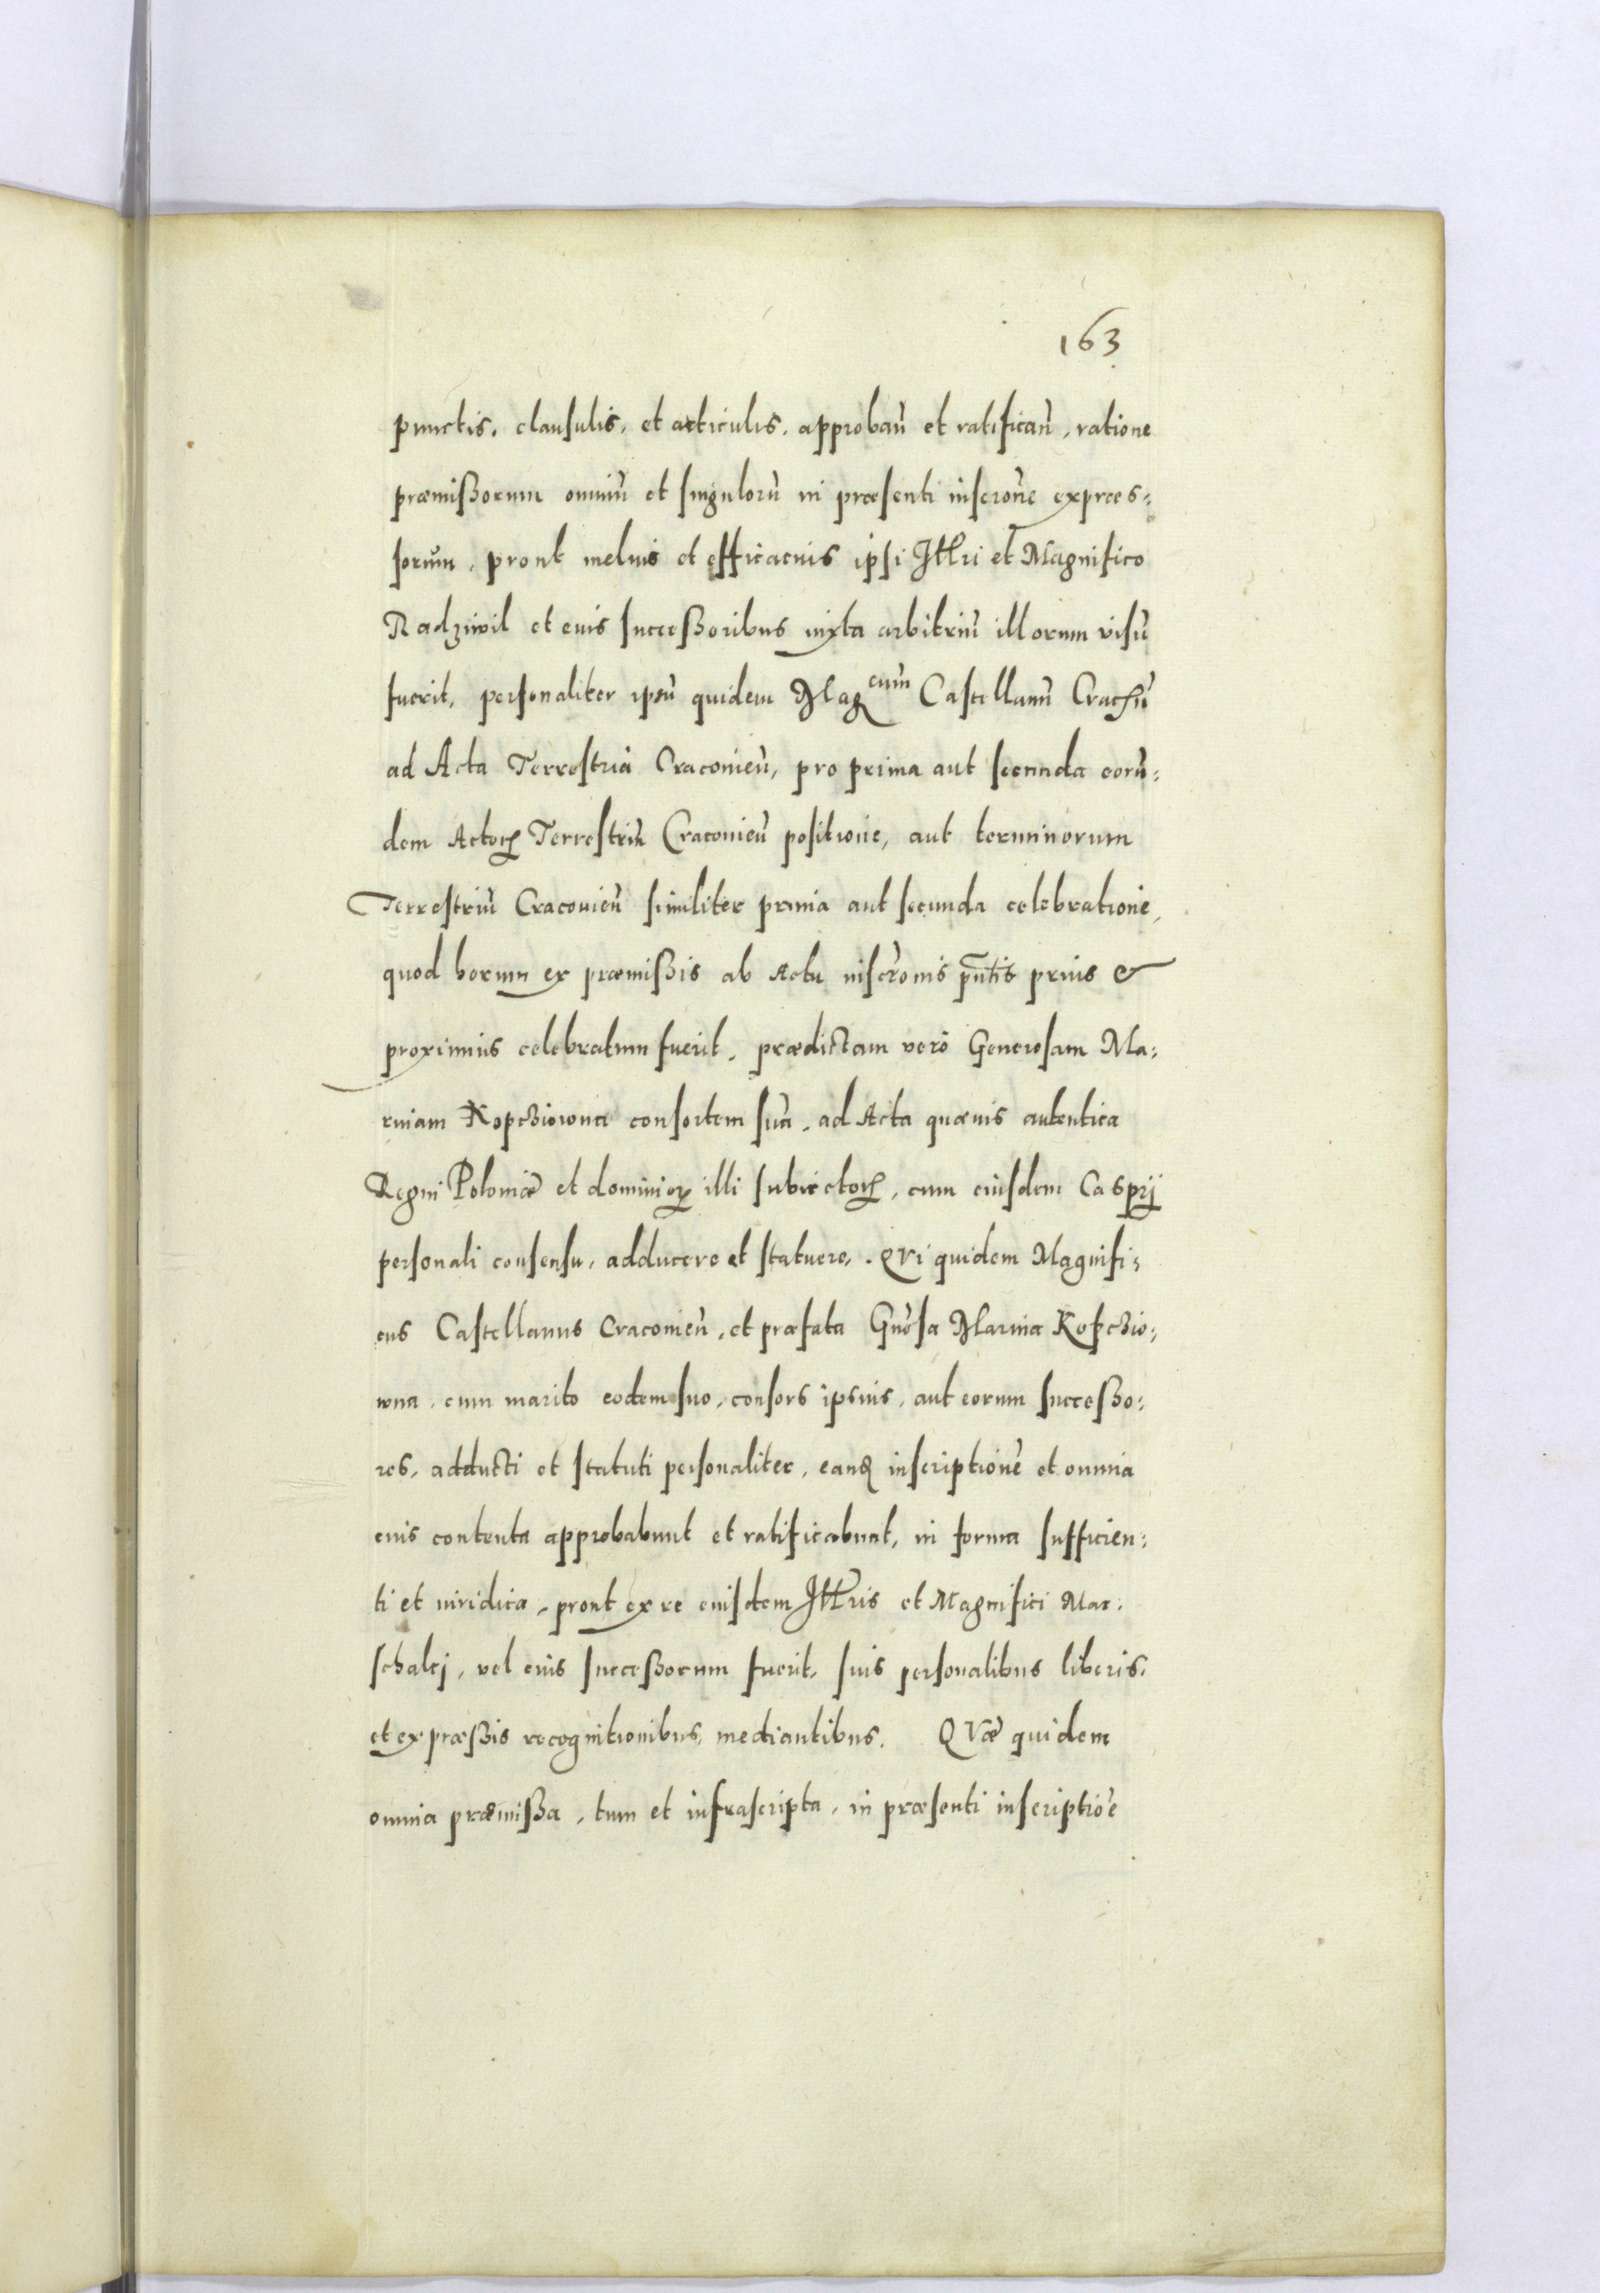 163
punctis, clausulis, et articulis, approbañ et ratificañ, ratione
præmißorum omniū et singulorū in præsenti inscrōne expres=
sorum, prout melius et efficacius ipsi Jllri et Magnifico
Radziwil et eius succeßoribus iuxta arbitriū illorum visū
fuerit, personaliter ipsū quidem Magcum Castellanū Cracñ
ad Acta Terrestria Cracovieñ, pro prima aut secunda eorū=
dem Actorꝝ Terrestriū Cracovieñ positione, aut terminorum
Terrestriū Cracovieñ similiter prima aut secunda celebratione,
quod horum ex præmißis ab Actu inscrōnis pn̄tis prius &
proximius celebratum fuerit, prædictam vero Generosam Ma=
rinam Kopcziowna consortem suā, ad Acta quævis autentica
Regni Poloniæ et dominiorꝝ illi subiectorꝝ, cum eiusdem Casprj
personali consensu, adducere et statuere. QVi quidem Magnifi=
cus Castellanus Cracovieñ, et præfata Gnōsa Marina Kopczio=
wna, cum marito eodem suo, consors ipsius, aut eorum succeßo=
res, adducti et statuti personaliter, eandē inscriptionē et omnia
eius contenta approbabunt et ratificabunt, in forma sufficien=
ti et iuridica, prout ex re eiusdem Jllris et Magnifici Mar=
schalcj, vel eius succeßorum fuerit, suis personalibus liberis,
et expræßis recognitionibus, mediantibus. QVæ quidem
omnia præmißa, tum et infrascripta, in præsenti inscriptiōe